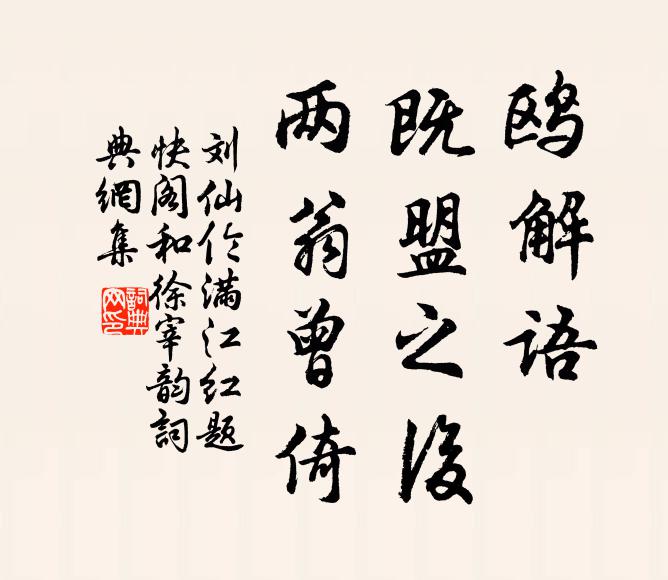 鸥解语
既盟之後
两翁曾倚
刘仙伦满江红题
快阁和徐宰韵詞
典網集
詞典
网印